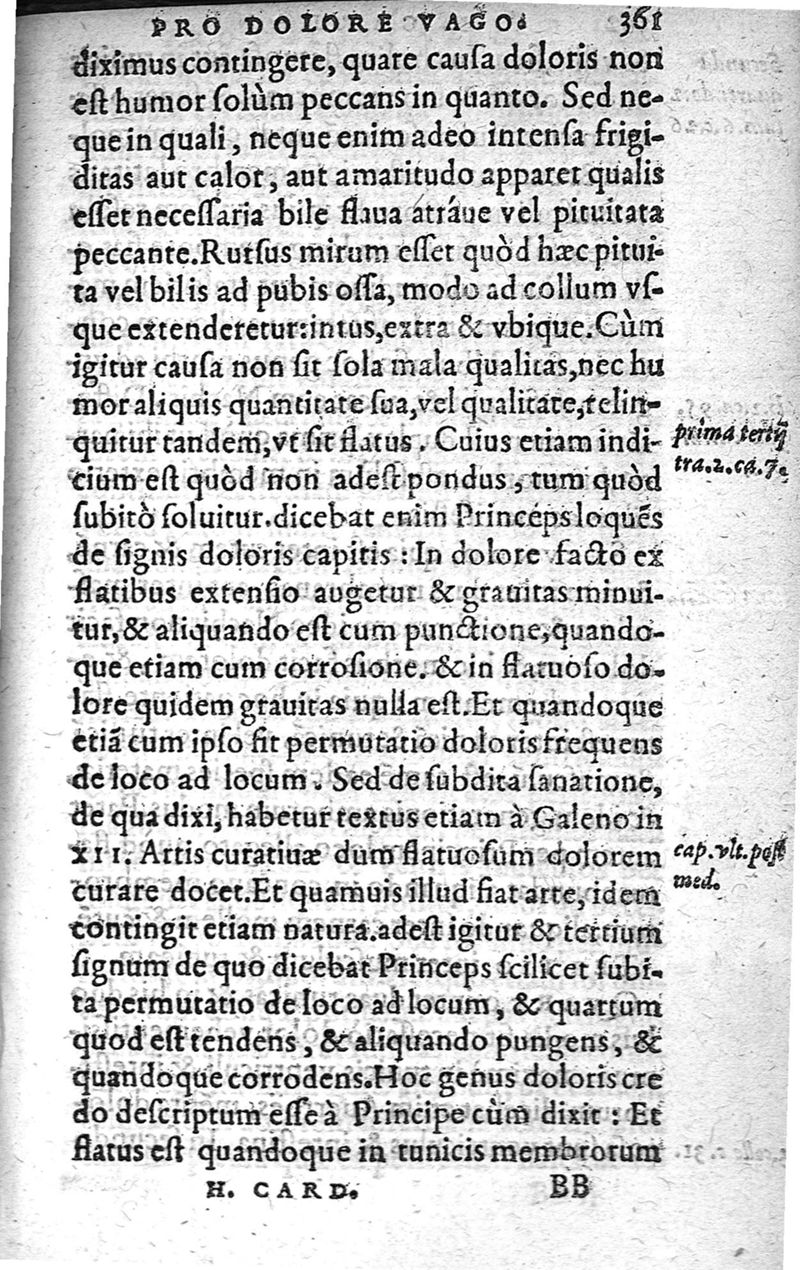 PRO DOLORE VAGO. 361
diximus contingere, quare cauſa doloris non
eſt humor ſolùm peccans in quanto. Sed ne-
que in quali, neque enim adeo intenſa frigi-
ditas aut calor, aut amaritudo apparet qualis
eſſet neceſſaria bile flaua atráue vel pituitata
peccante. Rurſus mirum eſſet quòd hæc pitui-
ta vel bilis ad pubis oſſa, modo ad collum vſ-
que extenderetur: intus, extra & vbique. Cùm
igitur cauſa non ſit ſola mala qualitas, nec hu
mor aliquis quantitate ſua, vel qualitate, relin-
quitur tandem, vt ſit flatus. Cuius etiam indi-
prima tertij
cium eſt quòd non adeſt pondus, tum quòd
tra. 2. ca. 7.
ſubitò ſoluitur. dicebat enim Princeps loquẽs
de ſignis doloris capitis: In dolore facto ex
flatibus extenſio augetur & grauitas minui-
tur, & aliquando eſt cum punctione, quando-
que etiam cum corroſione. & in flatuoſo do-
lore quidem grauitas nulla eſt. Et quandoque
etiã cum ipſo fit permutatio doloris frequens
de loco ad locum. Sed de ſubdita ſanatione,
de qua dixi, habetur textus etiam à Galeno in
XII. Artis curatiuæ dum flatuoſum dolorem
cap. vlt. poſt
curare docet. Et quamuis illud fiat arte, idem
med.
contingit etiam natura. adeſt igitur & tertium
ſignum de quo dicebat Princeps ſcilicet ſubi-
ta permutatio de loco ad locum, & quartum
quod eſt tendens, & aliquando pungens, &
quandoque corrodens. Hoc genus doloris cre
do deſcriptum eſſe à Principe cùm dixit: Et
flatus eſt quandoque in tunicis membrorum
H. CARD. BB